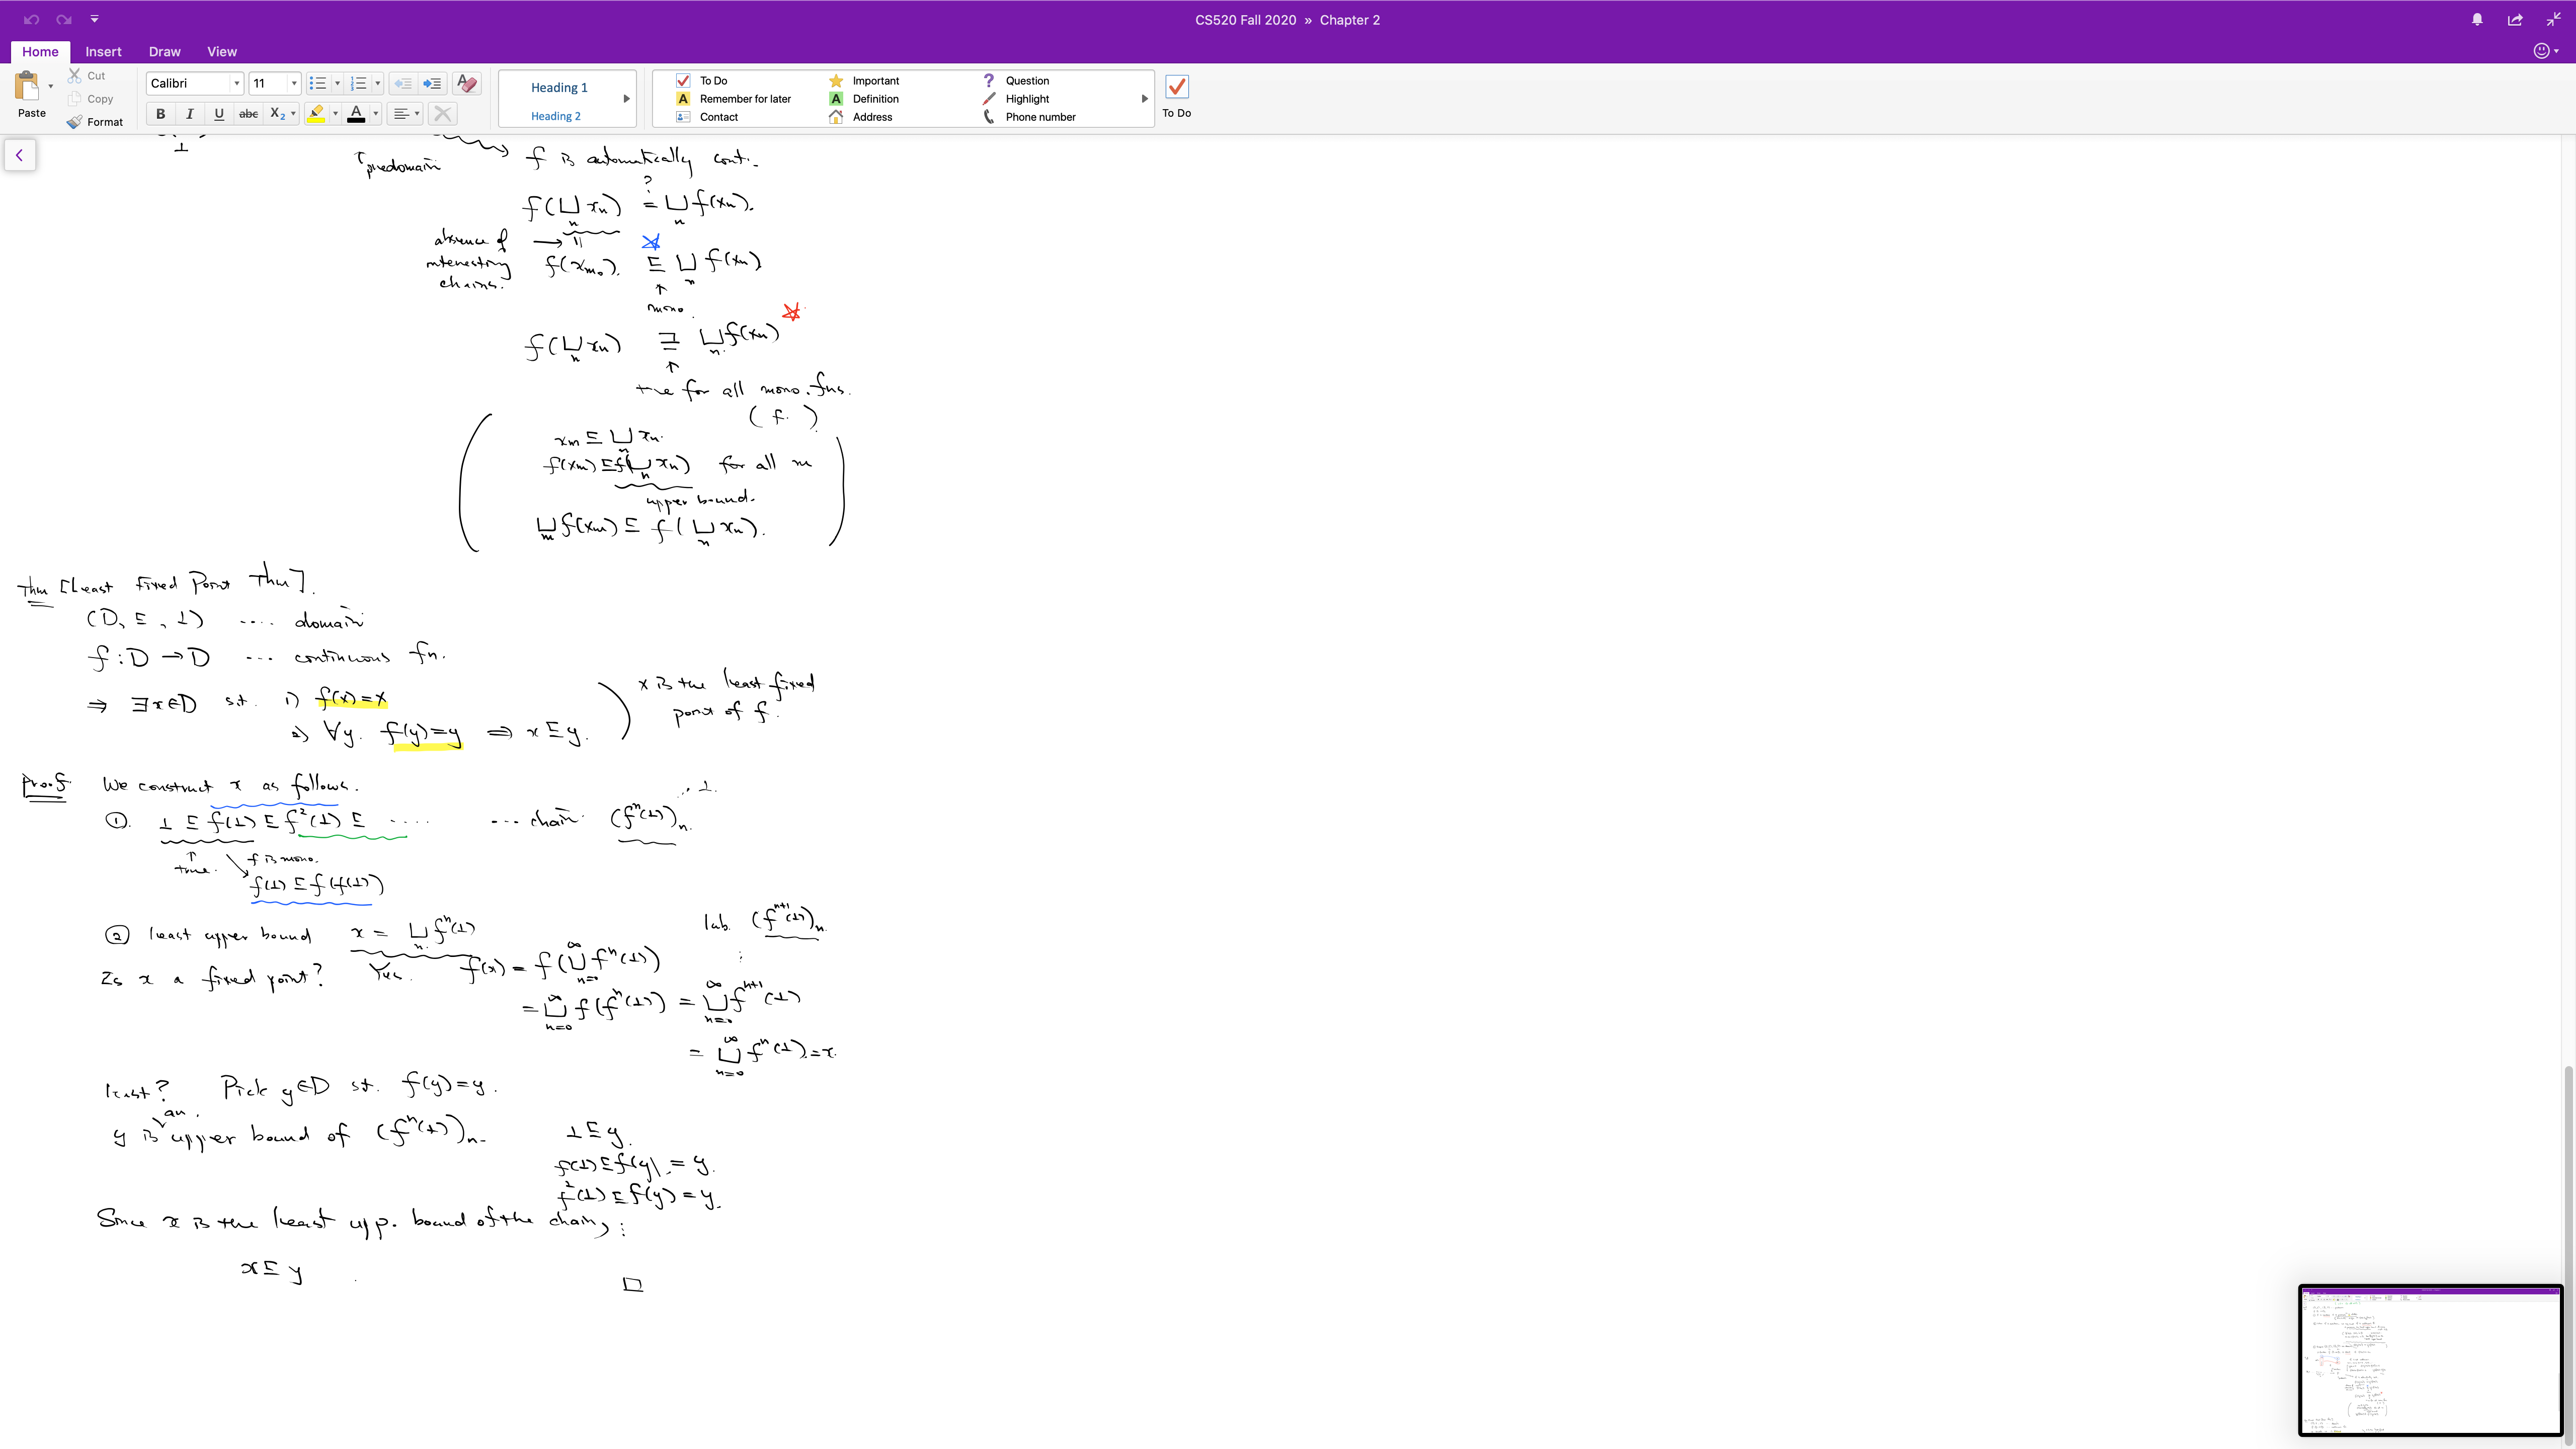 CS520 Fall 2020 » Chapter 2
Home Insert Draw View
Paste
Cut
Copy
Format
Calibri 11
B I U abc X₂ A
Heading 1
Heading 2
To Do
Remember for later
Contact
Important
Definition
Address
Question
Highlight
Phone number
To Do
⊥
↑ predomain
f is automatically cont.
?
f(⊔ₙ xₙ) = ⊔ₙ f(xₙ).
absence of interesting chains. → ||
f(x_m₀). ⊑ ⊔ₙ f(xₙ)
↑
mono.
f(⊔ₙ xₙ) ⊒ ⊔ₙ f(xₙ)
↑
true for all mono. fns.
( f. )
xₘ ⊑ ⊔ₙ xₙ.
f(xₘ) ⊑ f(⊔ₙ xₙ) for all m
upper bound.
⊔ₘ f(xₘ) ⊑ f(⊔ₙ xₙ).
Thm [Least Fixed Point Thm].
(D, ⊑, ⊥) .... domain
f : D → D ... continuous fn.
⇒ ∃x∈D s.t. 1) f(x)=x
2) ∀y. f(y)=y ⇒ x ⊑ y.
x is the least fixed
point of f.
Proof. We construct x as follows.
① ⊥ ⊑ f(⊥) ⊑ f²(⊥) ⊑ ...... ... chain (fⁿ(⊥))ₙ. ... ⊥.
↑
true.
f is mono.
f(⊥) ⊑ f(f(⊥))
② least upper bound x = ⊔ₙ fⁿ(⊥)
lub. (fⁿ⁺¹(⊥))ₙ
Is x a fixed point? Yes. f(x) = f(⊔_{n=0}^∞ fⁿ(⊥))
= ⊔_{n=0}^∞ f(fⁿ(⊥)) = ⊔_{n=0}^∞ fⁿ⁺¹(⊥)
= ⊔_{n=0}^∞ fⁿ(⊥). = x.
least? Pick y∈D s.t. f(y)=y.
y is an upper bound of (fⁿ(⊥))ₙ.
⊥ ⊑ y.
f(⊥) ⊑ f(y) = y.
f²(⊥) ⊑ f(y) = y.
⋮
Since x is the least upp. bound of the chain,
x ⊑ y
□